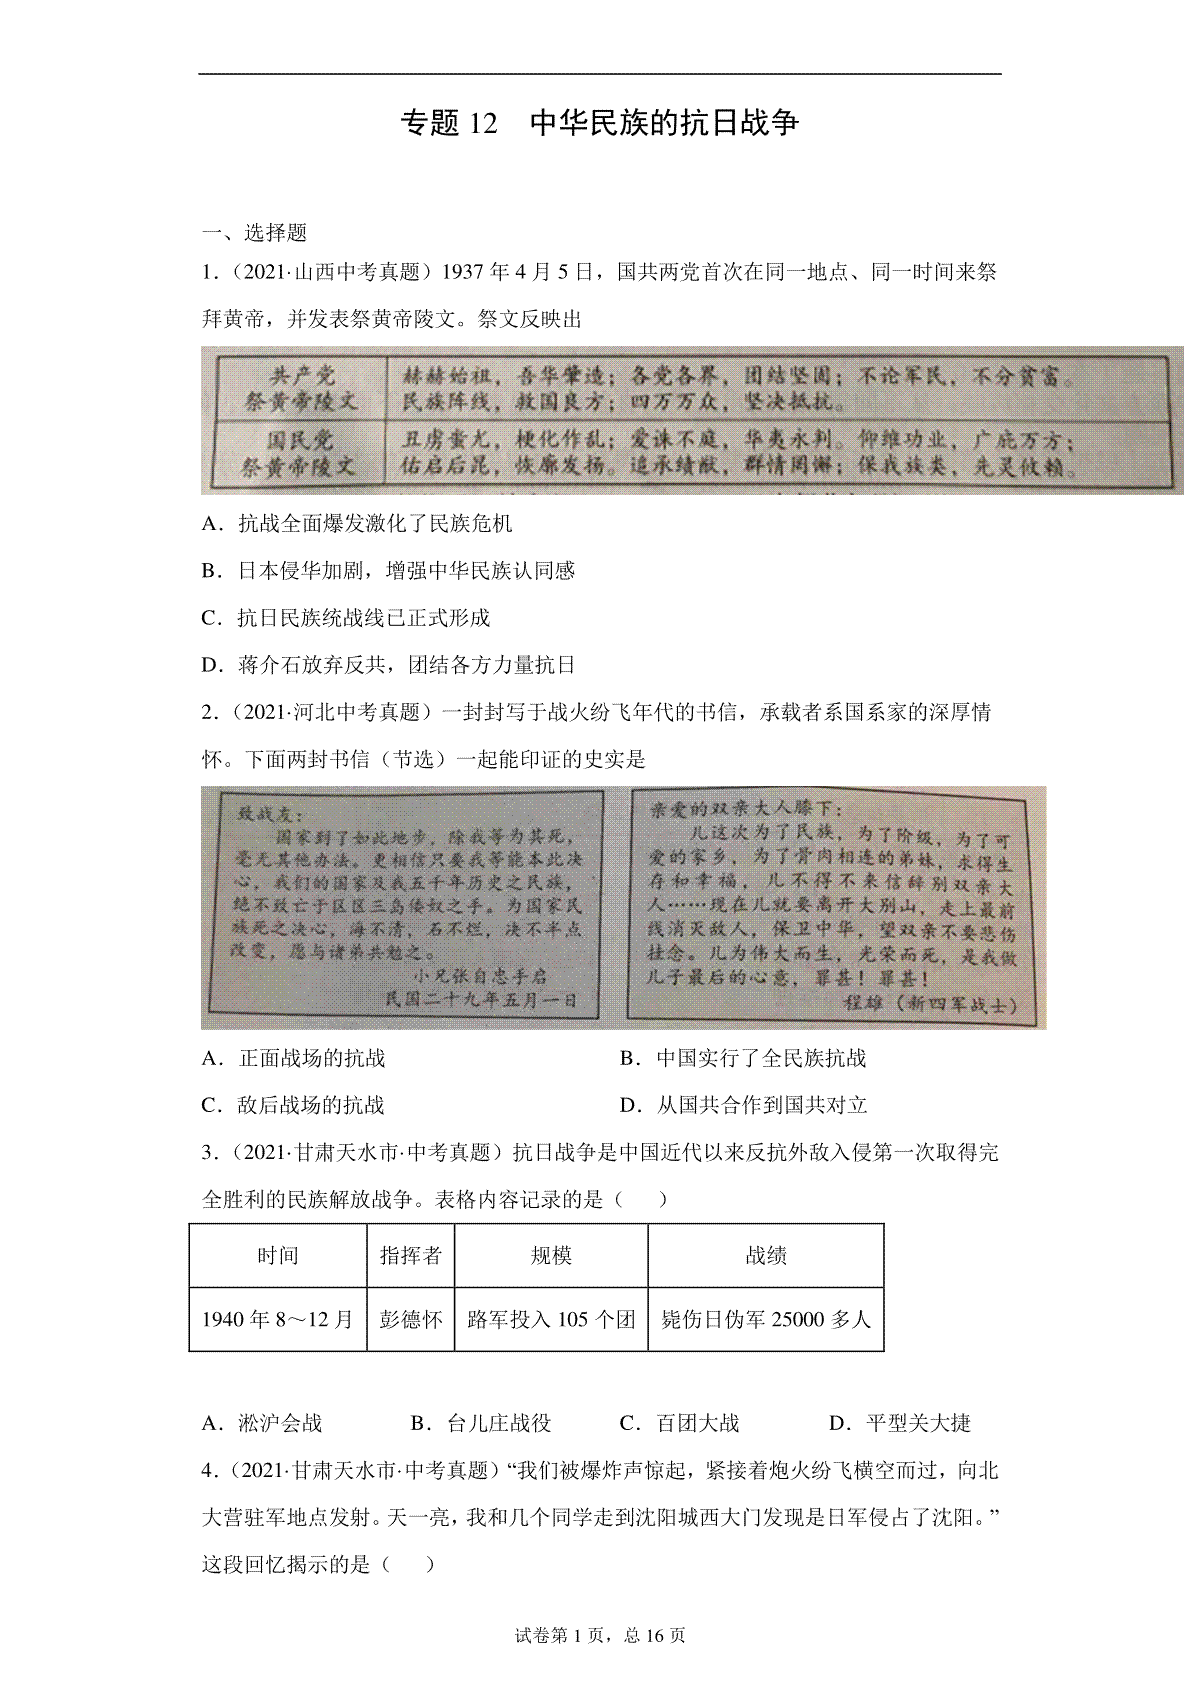 专题 12 中华民族的抗日战争
一、选择题
1．（2021·山西中考真题）1937 年 4 月 5 日，国共两党首次在同一地点、同一时间来祭
拜黄帝，并发表祭黄帝陵文。祭文反映出
共产党
祭黄帝陵文
赫赫始祖，吾华肇造；各党各界，团结坚固；不论军民，不分贫富。
民族阵线，救国良方；四万万众，坚决抵抗。
国民党
祭黄帝陵文
丑虏蚩尤，梗化作乱；爱诛不庭，华夷永判。仰维功业，广庇万方；
佑启后昆，恢廓发扬。追承绩猷，群情罔懈；保我族类，先灵攸赖。
A．抗战全面爆发激化了民族危机
B．日本侵华加剧，增强中华民族认同感
C．抗日民族统战线已正式形成
D．蒋介石放弃反共，团结各方力量抗日
2．（2021·河北中考真题）一封封写于战火纷飞年代的书信，承载者系国系家的深厚情
怀。下面两封书信（节选）一起能印证的史实是
致战友：
国家到了如此地步，除我等为其死，
毫无其他办法。更相信只要我等能本此决
心，我们的国家及我五千年历史之民族，
绝不致亡于区区三岛倭奴之手。为国家民
族死之决心，海不清，石不烂，决不半点
改变，愿与诸弟共勉之。
小兄张自忠手启
民国二十九年五月一日
亲爱的双亲大人膝下：
儿这次为了民族，为了阶级，为了可
爱的家乡，为了骨肉相连的弟妹，求得生
存和幸福，儿不得不来信辞别双亲大
人……现在儿就要离开大别山，走上最前
线消灭敌人，保卫中华，望双亲不要悲伤
挂念。儿为伟大而生，光荣而死，是我做
儿子最后的心意，罪甚！罪甚！
程雄（新四军战士）
A．正面战场的抗战 B．中国实行了全民族抗战
C．敌后战场的抗战 D．从国共合作到国共对立
3．（2021·甘肃天水市·中考真题）抗日战争是中国近代以来反抗外敌入侵第一次取得完
全胜利的民族解放战争。表格内容记录的是（ ）
时间 指挥者 规模 战绩
1940 年 8～12 月 彭德怀 路军投入 105 个团 毙伤日伪军 25000 多人
A．淞沪会战 B．台儿庄战役 C．百团大战 D．平型关大捷
4．（2021·甘肃天水市·中考真题）“我们被爆炸声惊起，紧接着炮火纷飞横空而过，向北
大营驻军地点发射。天一亮，我和几个同学走到沈阳城西大门发现是日军侵占了沈阳。”
这段回忆揭示的是（ ）
试卷第 1 页，总 16 页